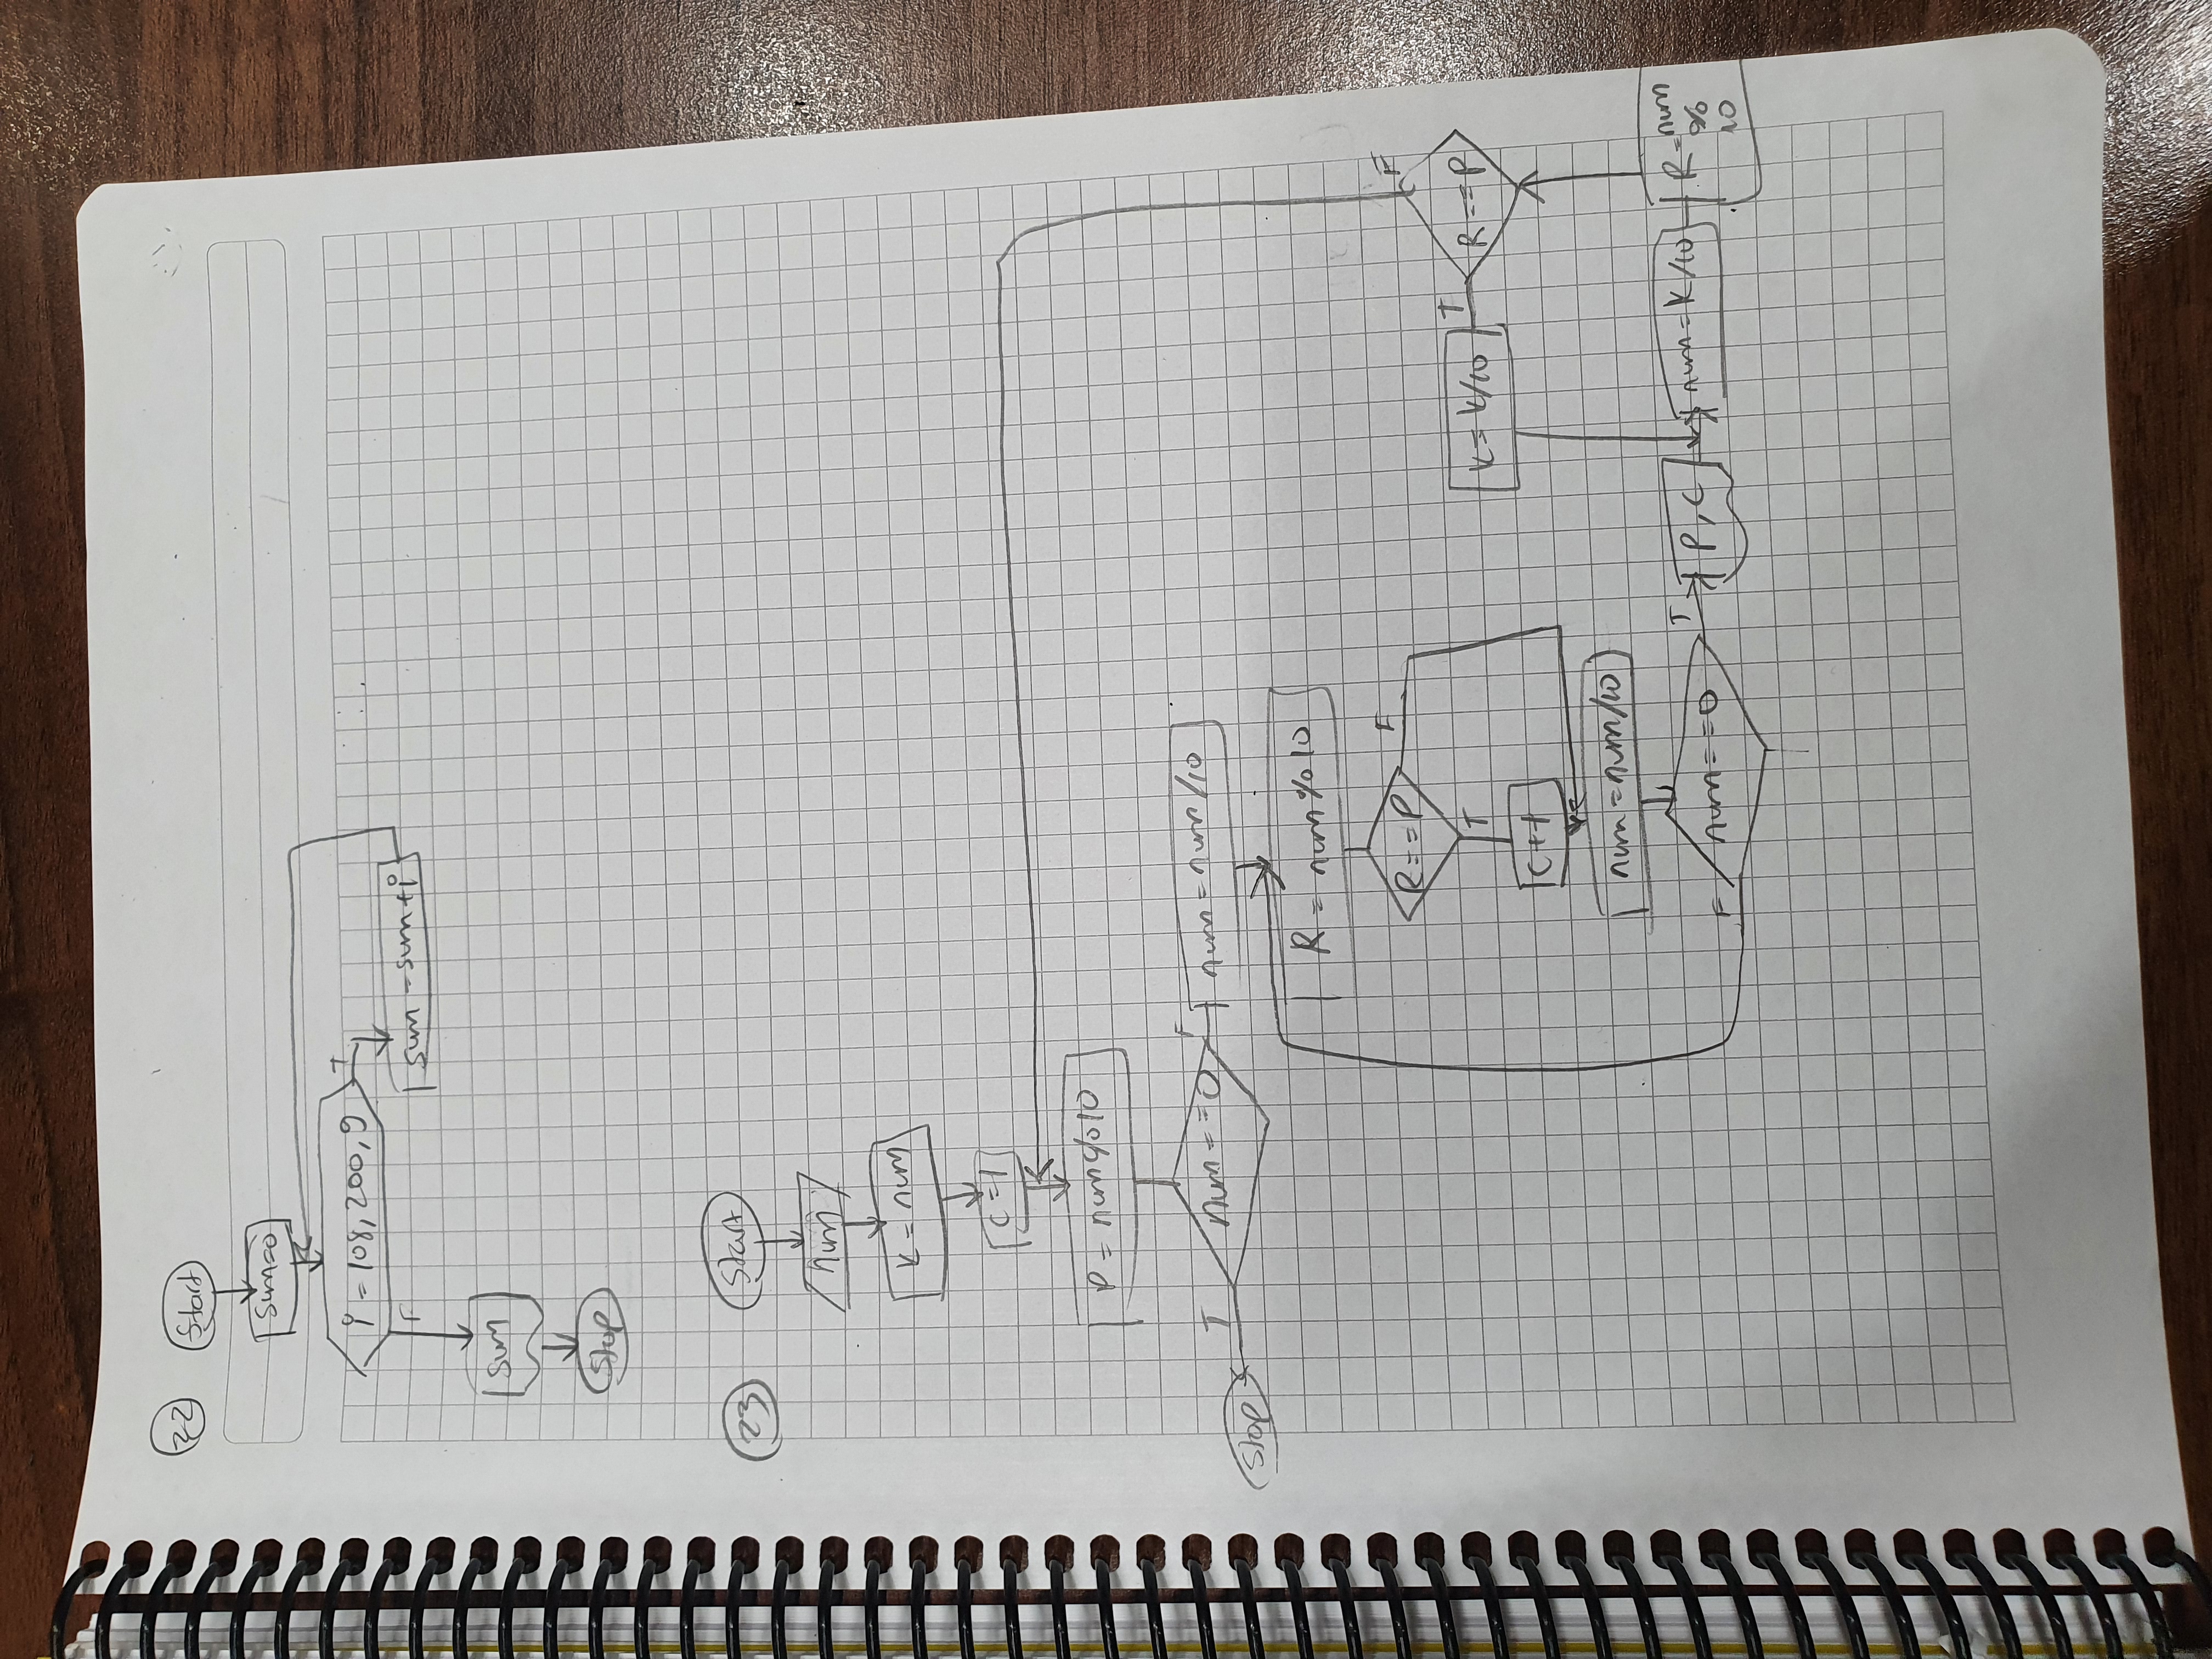 22
Start
Sum=0
i = 108, 200, 9
T
sum = sum + i
F
sum
Stop
23
Start
num
K = num
C = 1
P = num % 10
T
num == 0
F
num = num / 10
Stop
R = num % 10
R == P
F
T
C + 1
num = num / 10
num == 0
F
T
P, C
num = K / 10
R = num
%
10
R == P
F
T
K = K / 10